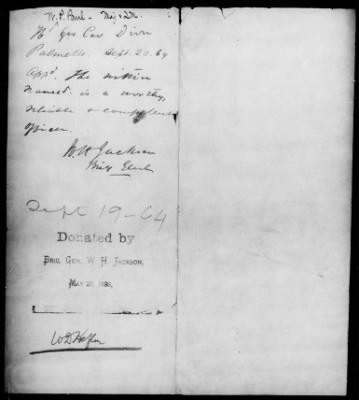 W. P. Paul - Maj & QM
Hd Qrs Cav Divn
Palmetto Sept. 20. 64
Appd. The within
named is a worthy,
reliable & competent
officer.
W. H. Jackson
Brig Genl
Sept 19-64
Donated by
BRIG. GEN. W. H. JACKSON,
MAY 28, 1888.